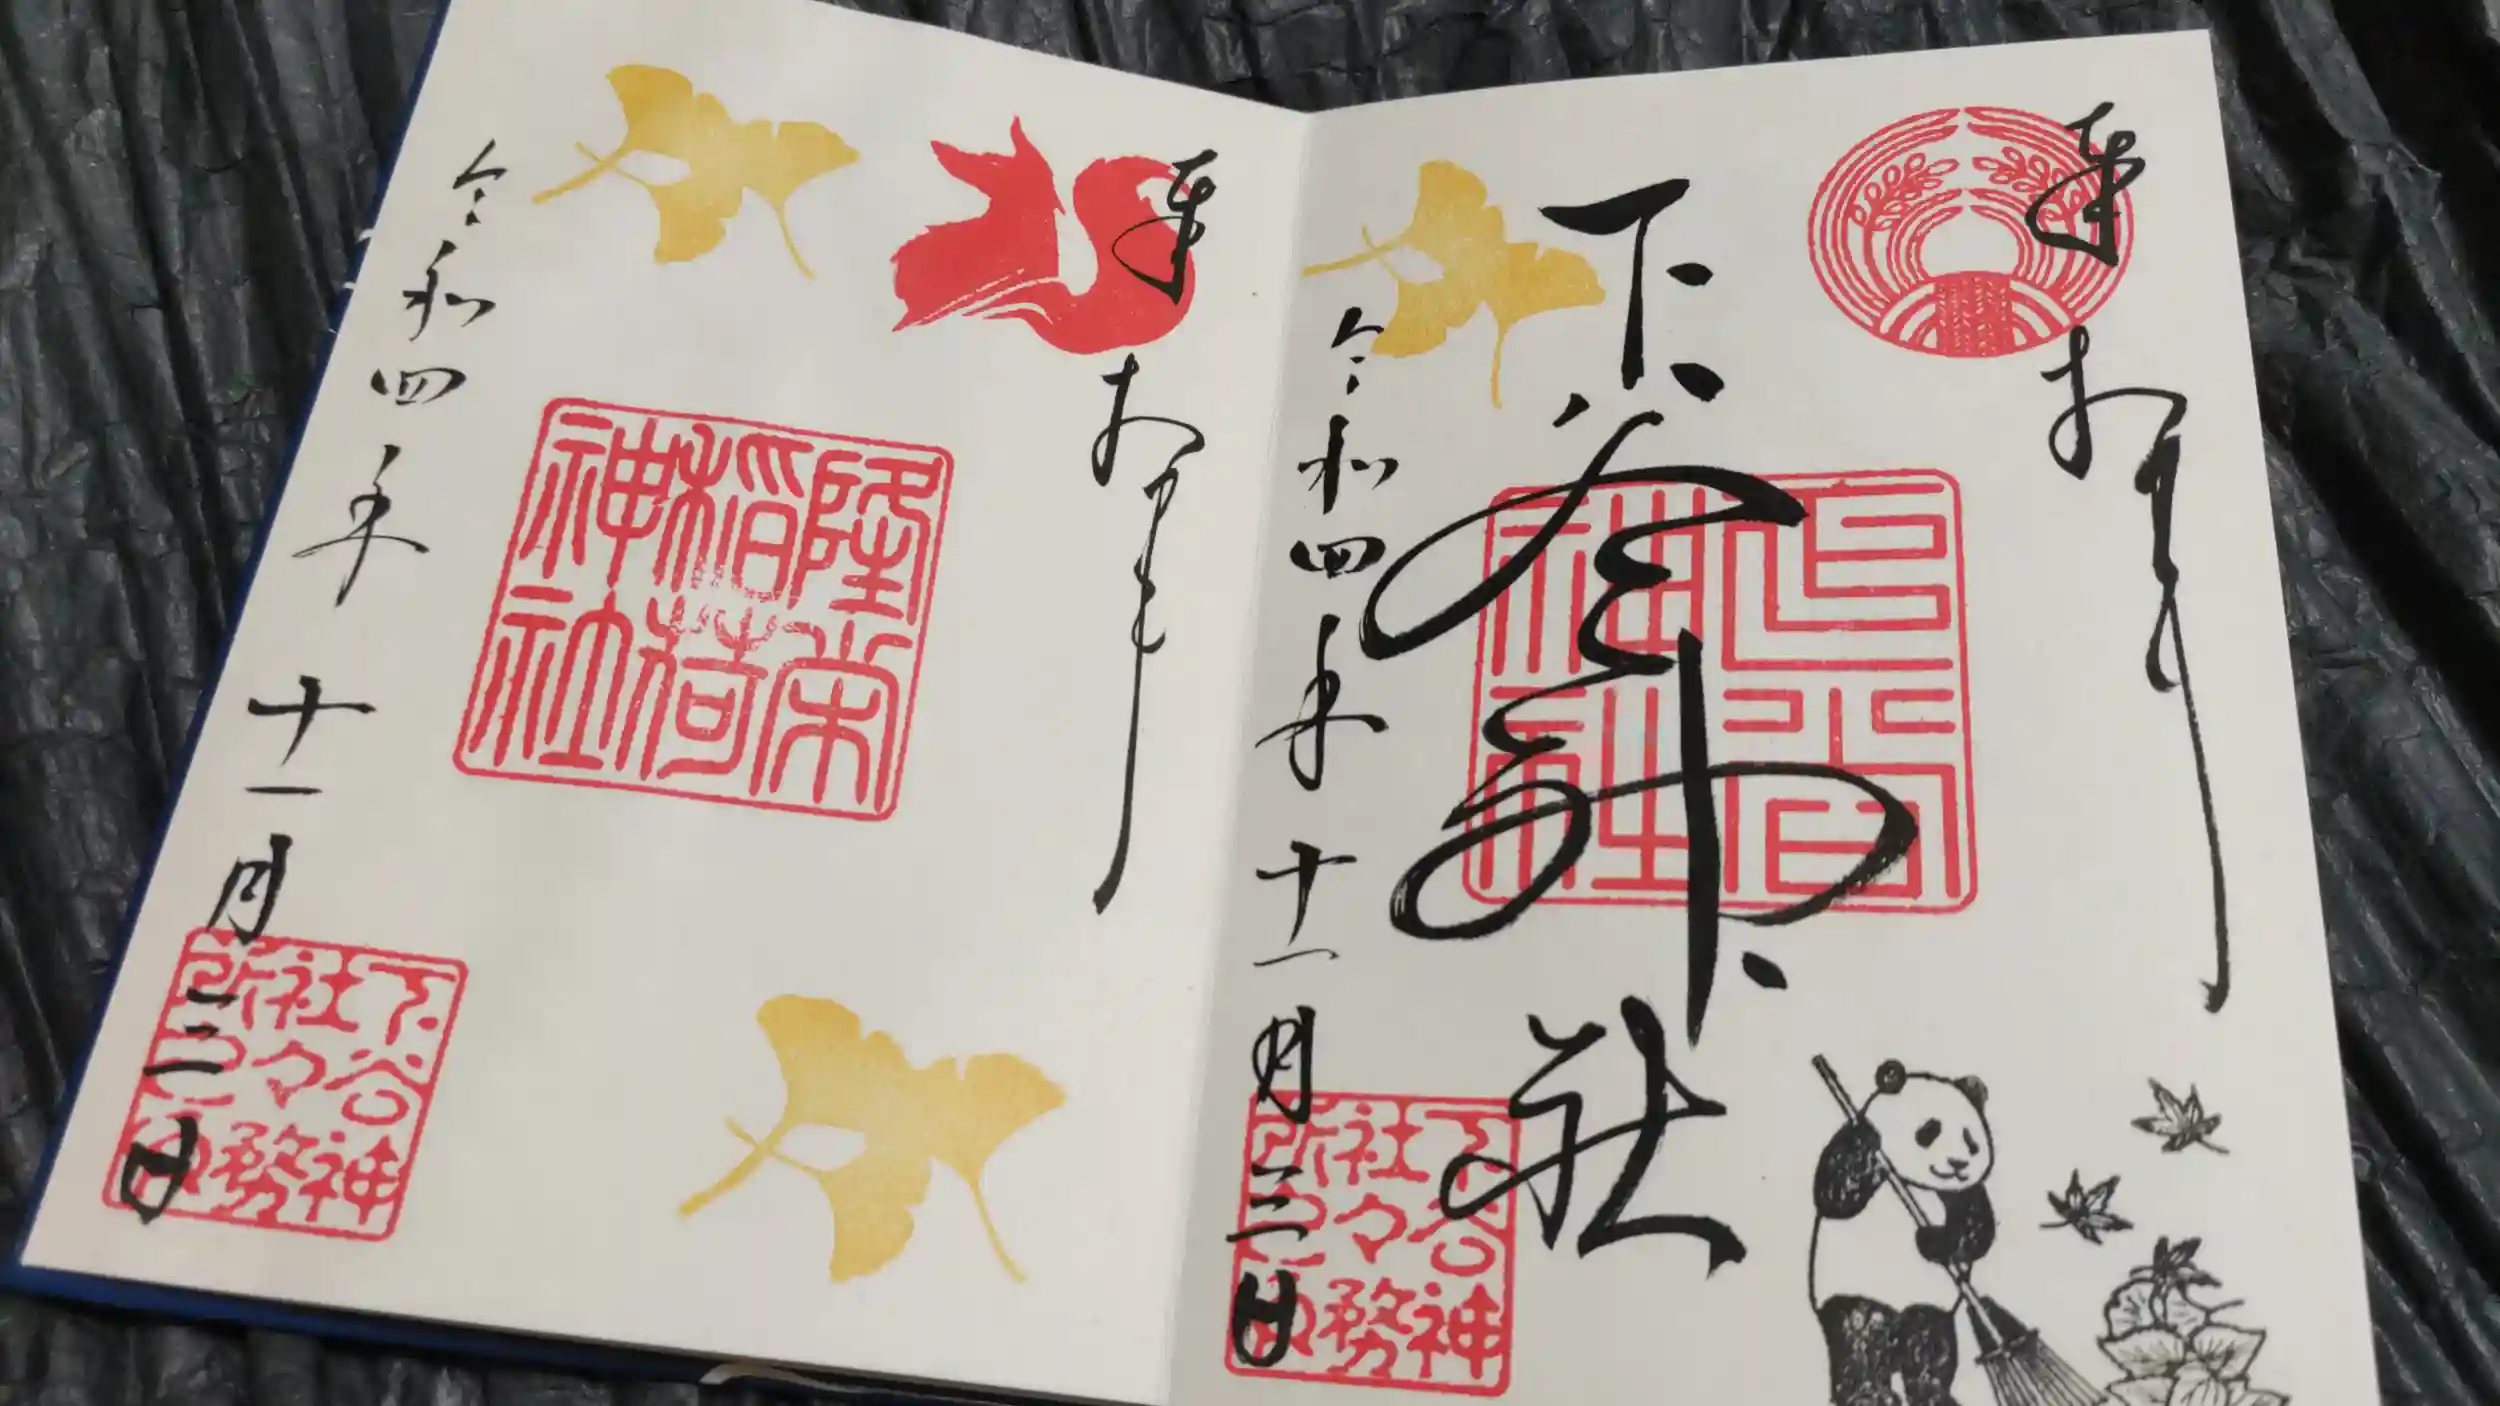 奉拝
下谷
神社
下谷神社
令和四年十一月三日
下谷神
社々務
所之印
奉拝
隆栄
稲荷
神社
令和四年十一月三日
下谷神
社々務
所之印